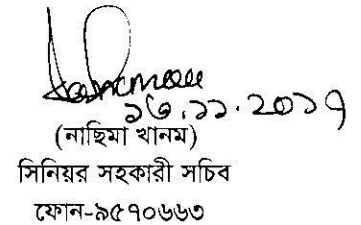 ১৩.১১.২০১৭
(নাছিমা খানম)
সিনিয়র সহকারী সচিব
ফোন-৯৫৭০৬৬৩